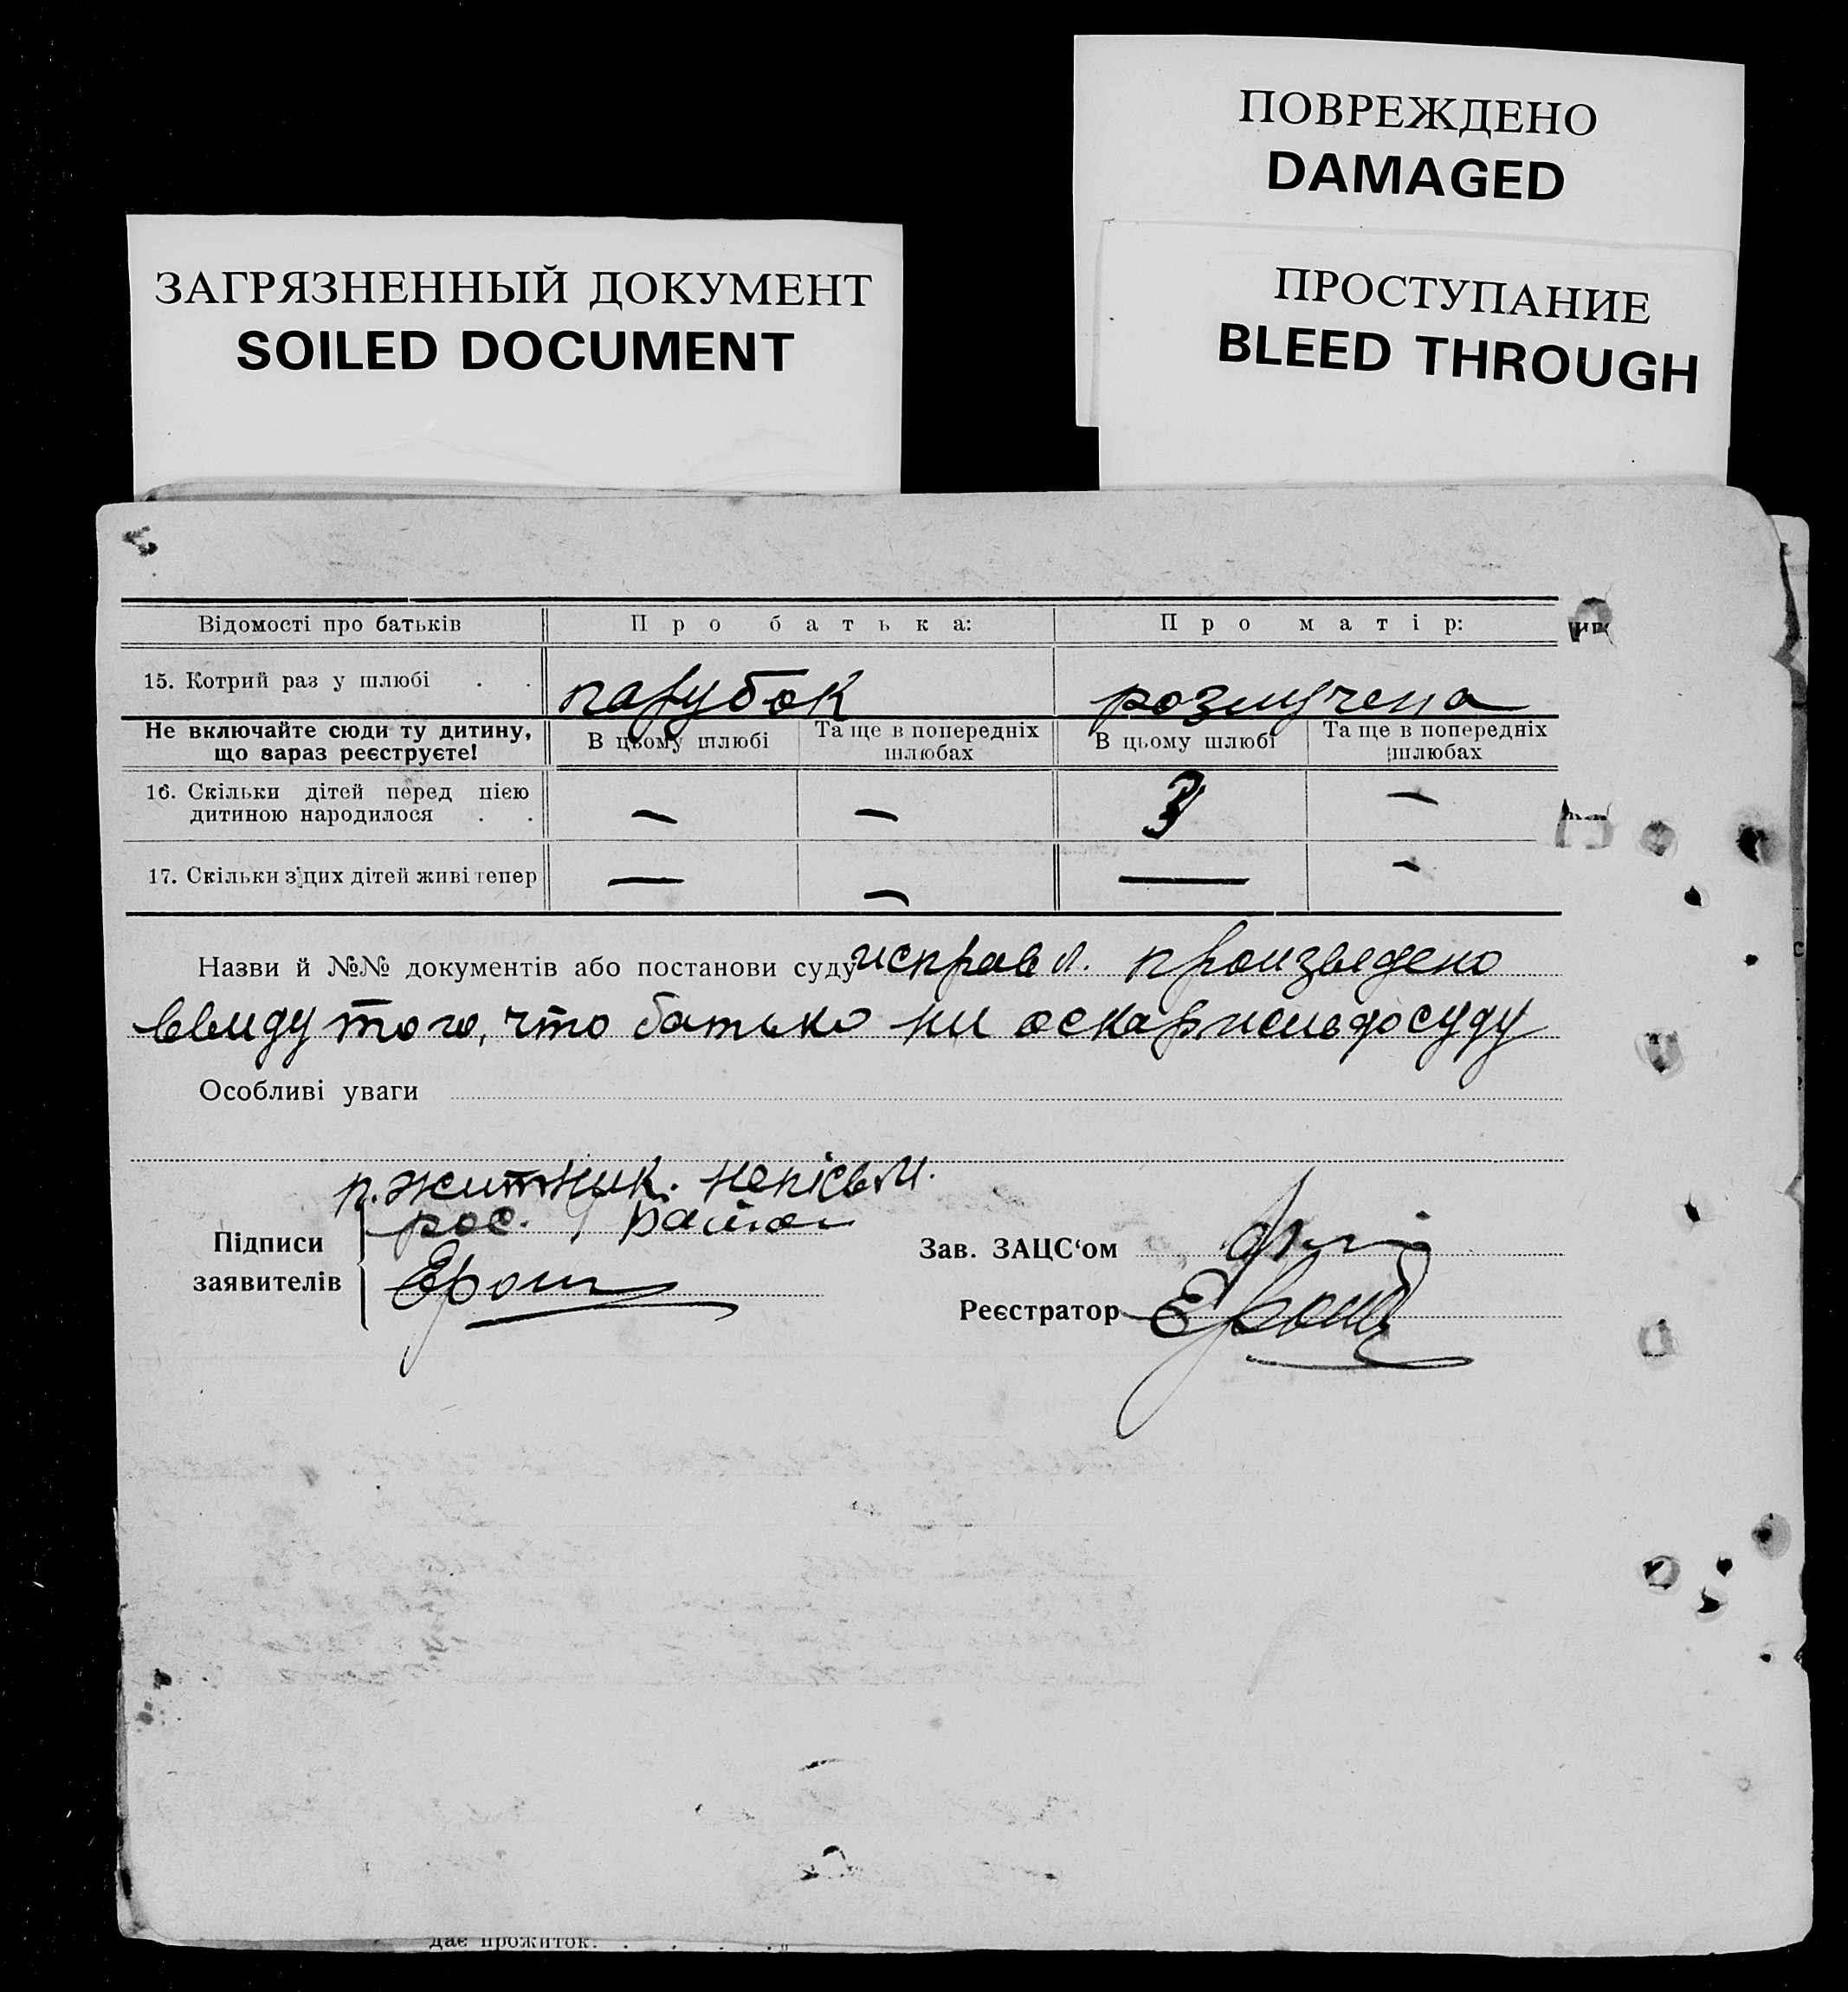 ПОВРЕЖДЕНО
DAMAGED
ЗАГРЯЗНЕННЫЙ ДОКУМЕНТ
SOILED DOCUMENT
ПРОСТУПАНИЕ
BLEED THROUGH
Відомості про батьків Про батька: Про матір:
15. Котрий раз у шлюбі . . парубок розлучена
Не включайте сюди ту дитину, що зараз реєструєте! В цьому шлюбі Та ще в попередніх шлюбах В цьому шлюбі Та ще в попередніх шлюбах
16. Скільки дітей перед цією дитиною народилося . . — — 3 —
17. Скільки з цих дітей живі тепер — — — —
Назви й №№ документів або постанови суду исправл. произведено
ввиду того, что батько ни оскаржень до суду
Особливі уваги
п. житник. непісьм.
Підписи заявителів рос.
Ерош
Зав. ЗАЦС‘ом
Реєстратор Ерош
дає прожиток. . . . „